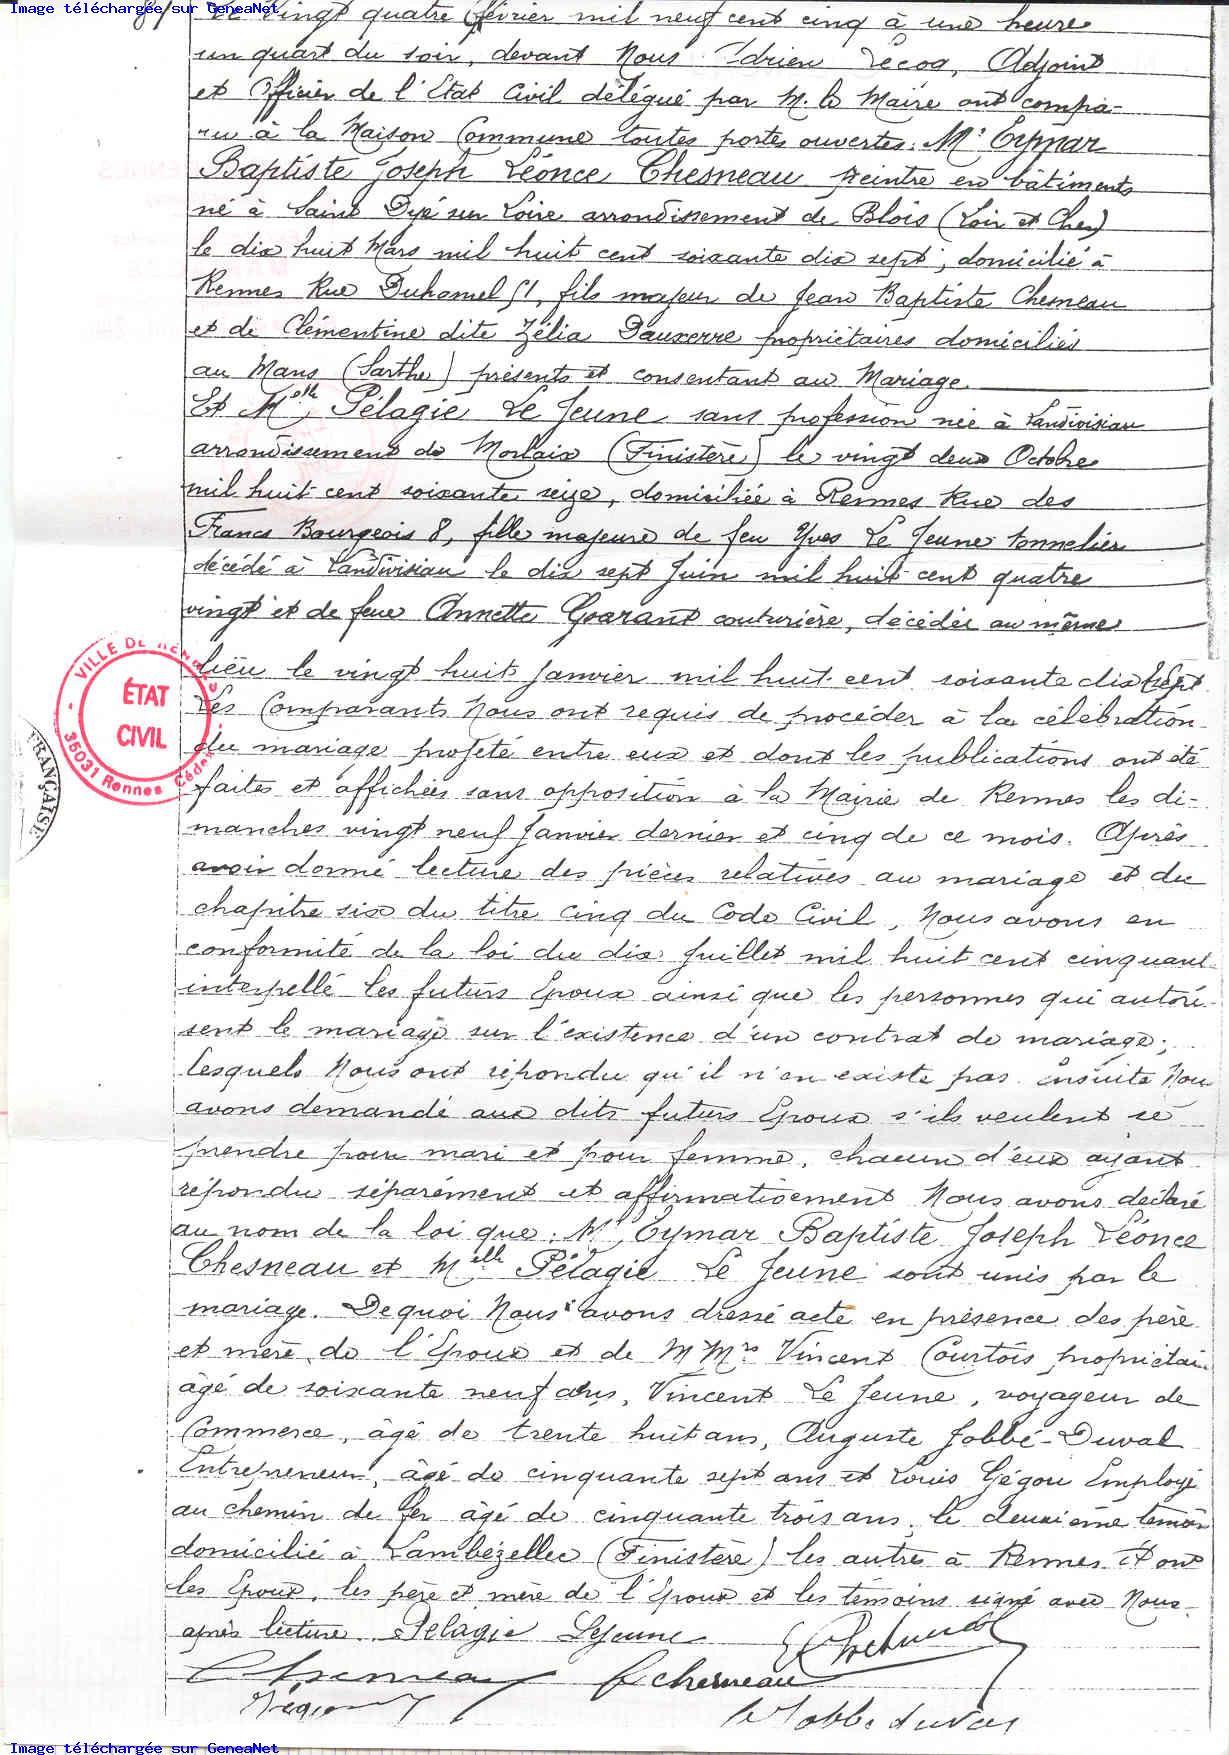 Image téléchargée sur GeneaNet
Le vingt quatre février mil neuf cent cinq à une heure
un quart du soir, devant Nous Adrien Lecoq, Adjoint
et Officier de l'Etat Civil délégué par M. le Maire ont compa-
-ru à la Maison Commune toutes portes ouvertes: Mr Eymar
Baptiste Joseph Léonce Chesneau peintre en bâtiments
né à Saint Dyé sur Loire arrondissement de Blois (Loir et Cher)
le dix huit Mars mil huit cent soixante dix sept, domicilié à
Rennes Rue Duhamel 51, fils majeur de Jean Baptiste Chesneau
et de Clémentine dite Zélia Dauxerre propriétaires domiciliés
au Mans (Sarthe) présents et consentant au Mariage.
Et Melle Pélagie Le Jeune sans profession née à Landivisiau
arrondissement de Morlaix (Finistère) le vingt deux Octobre
mil huit cent soixante seize, domiciliée à Rennes Rue des
Francs Bourgeois 8, fille majeure de feu Yves Le Jeune tonnelier
décédé à Landivisiau le dix sept Juin mil huit cent quatre
vingt et de feue Annette Goarant couturière, décédée au même
lieu le vingt huit Janvier mil huit cent soixante dix sept.
Les Comparants Nous ont requis de procéder à la célébration
du mariage projeté entre eux et dont les publications ont été
faites et affichées sans opposition à la Mairie de Rennes les di-
manches vingt neuf Janvier dernier et cinq de ce mois. Après
avoir donné lecture des pièces relatives au mariage et du
chapitre six du titre cinq du Code Civil, Nous avons en
conformité de la loi du dix Juillet mil huit cent cinquante
interpellé les futurs Epoux ainsi que les personnes qui autori-
sent le mariage sur l'existence d'un contrat de mariage;
lesquels Nous ont répondu qu'il n'en existe pas. Ensuite Nous
avons demandé aux dits futurs Epoux s'ils veulent se
prendre pour mari et pour femme, chacun d'eux ayant
répondu séparément et affirmativement Nous avons déclaré
au nom de la loi que: Mr Eymar Baptiste Joseph Léonce
Chesneau et Melle Pélagie Le Jeune sont unis par le
mariage. De quoi Nous avons dressé acte en présence des père
et mère de l'Epoux et de MMrs Vincent Courtois propriétaire
âgé de soixante neuf ans, Vincent Le Jeune, voyageur de
Commerce, âgé de trente huit ans, Auguste Jobbé-Duval
Entrepreneur, âgé de cinquante sept ans et Louis Gégou Employé
au chemin de fer âgé de cinquante trois ans, le deuxième témoin
domicilié à Lambézellec (Finistère) les autres à Rennes. Et ont
les Epoux, les père et mère de l'Epoux et les témoins signé avec Nous
après lecture. Pélagie Lejeune
Chesneau
Chesneau
Gégou
Jobbé duval
VILLE DE RENNES
ÉTAT
CIVIL
35031 Rennes Cédex
FRANÇAISE
Image téléchargée sur GeneaNet